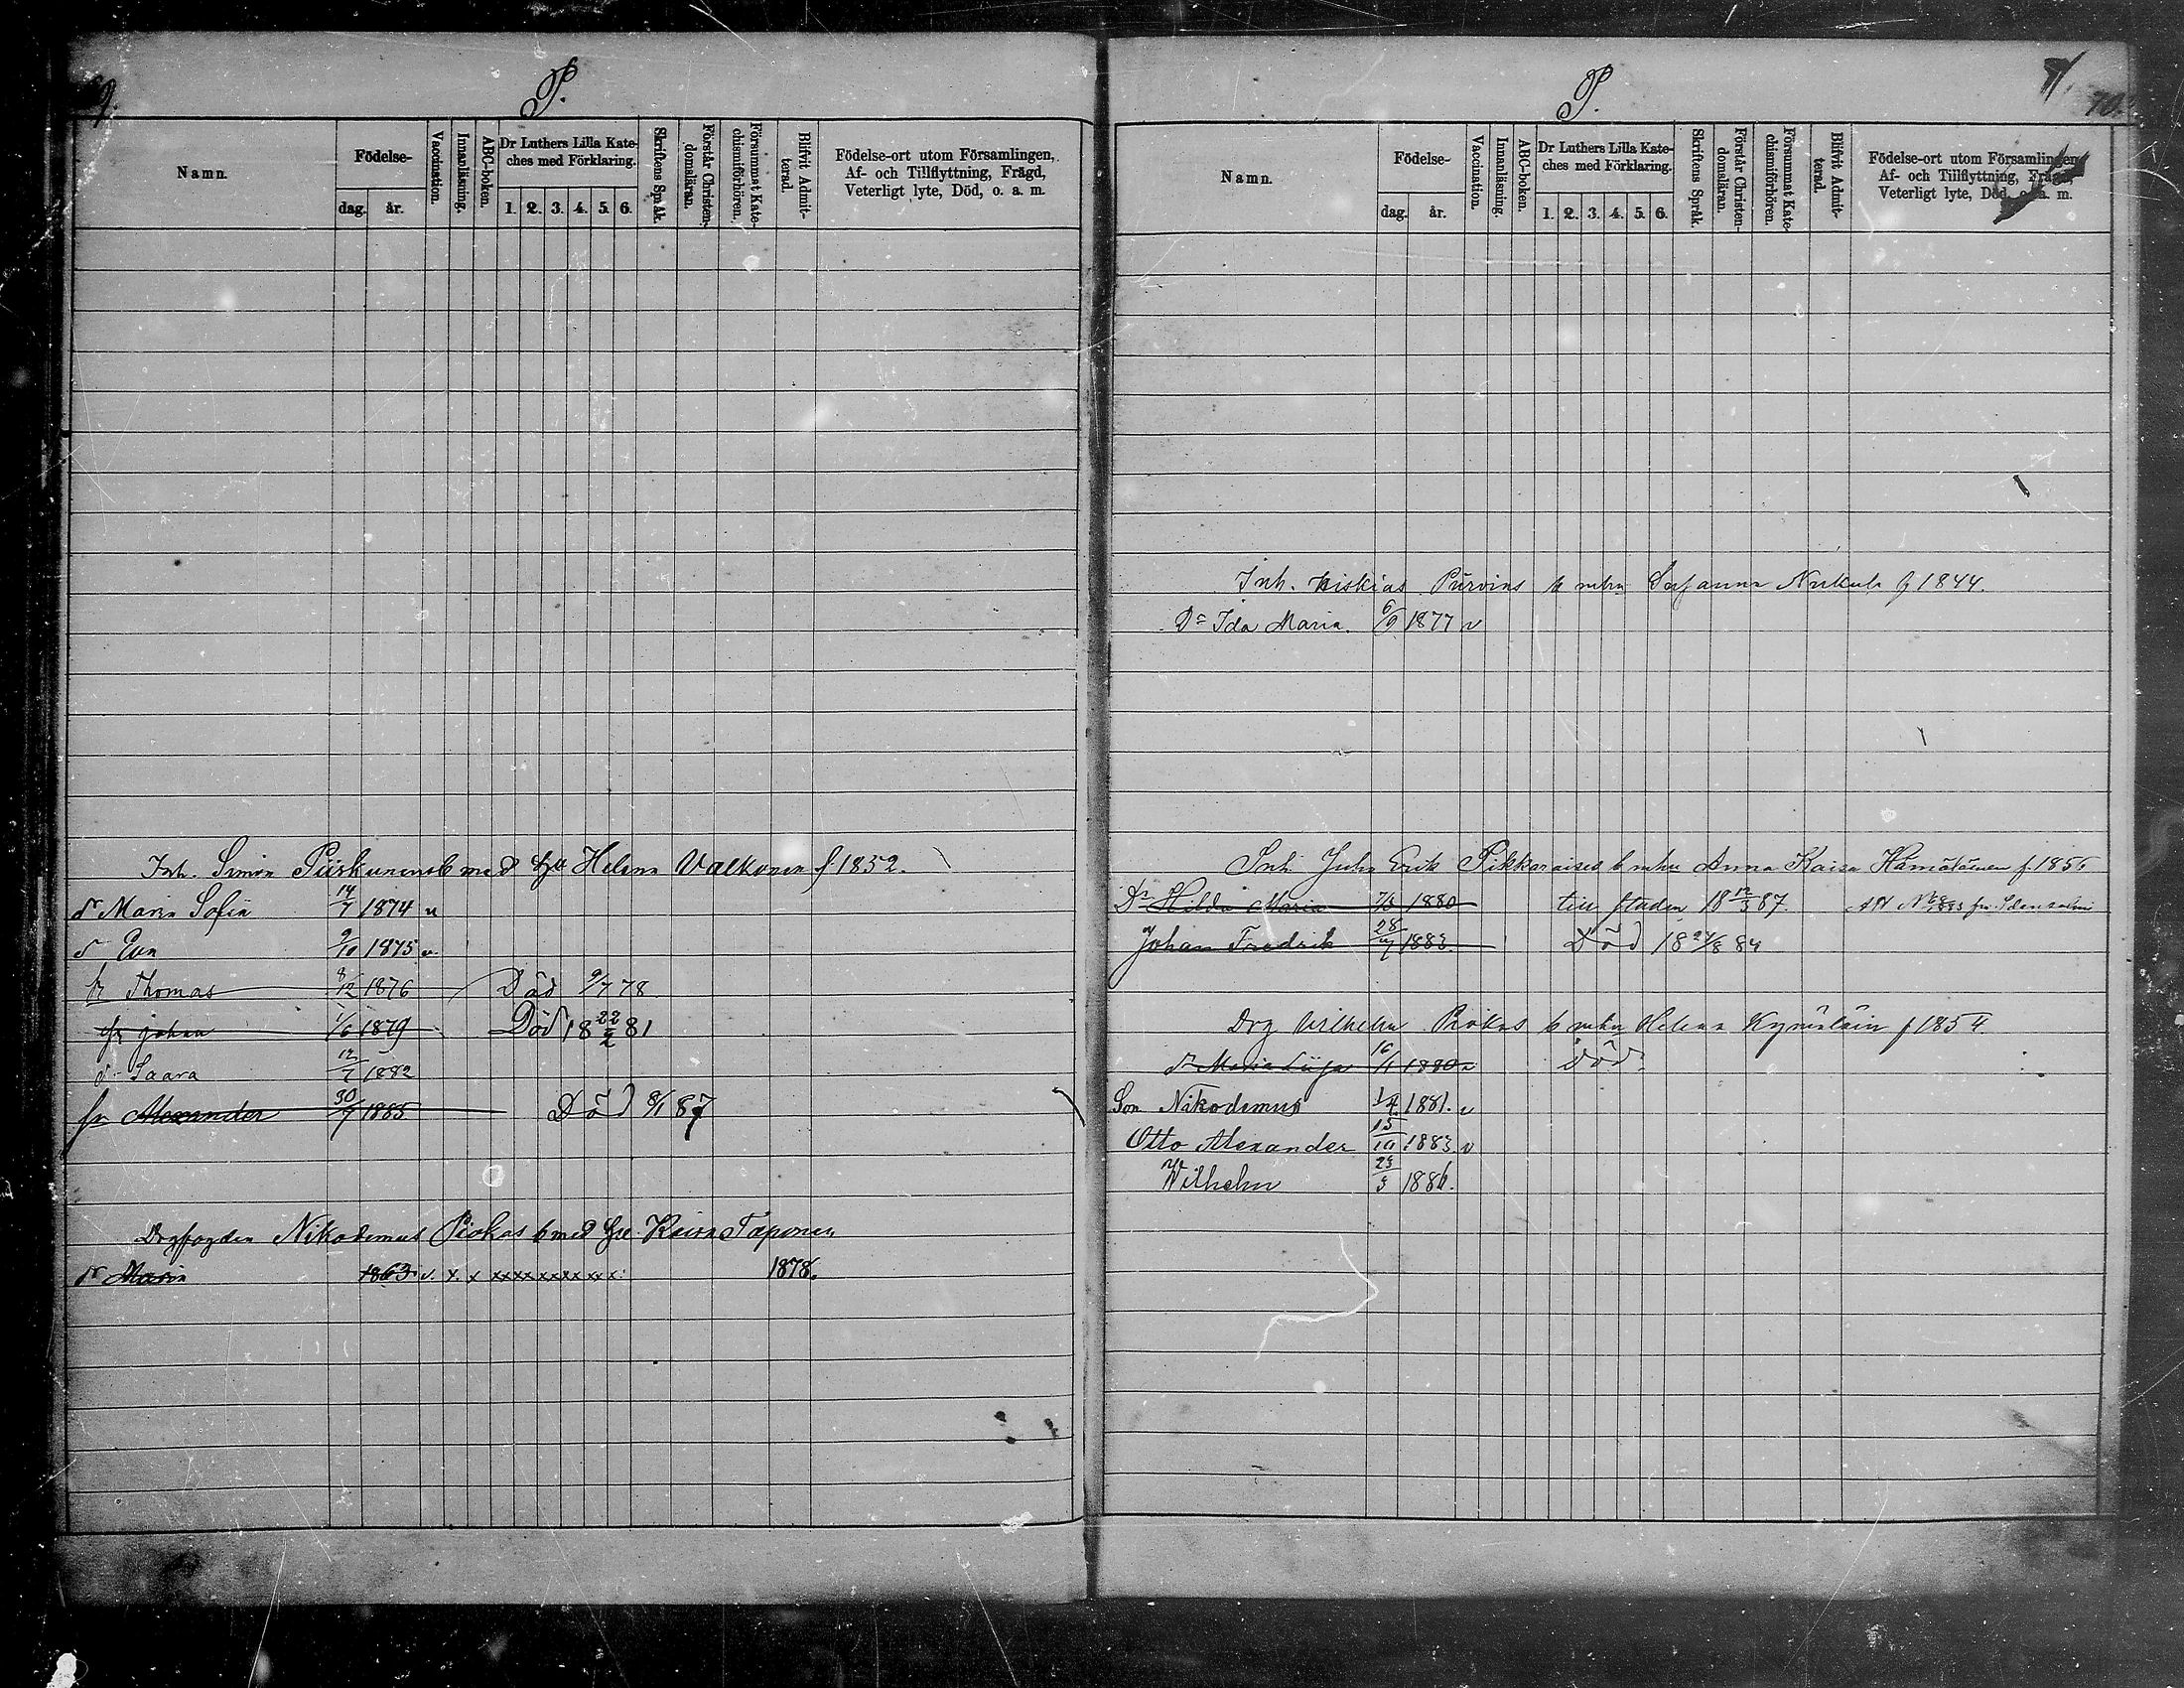 P.
Namn.
Födelse-
dag. år.
Vaccination.
Innanläsning.
ABC-boken.
Dr Luthers Lilla Kate-
ches med Förklaring.
1. 2. 3. 4. 5. 6.
Skriftens Språk.
Förstår Christen-
domsläran.
Försummat Kate-
chismiförhören.
Blifvit Admit-
terad.
Födelse-ort utom Församlingen,
Af- och Tillflyttning, Frägd,
Veterligt lyte, Död, o. a. m.
Inh. Simon Piiskunens b med Helena Valkonen f. 1852.
dr Maria Sofia 14/7 1874 v
dr Eva 9/10 1875 v.
Thomas 8/12 1876 Död 9/7 78
Johan 1/6 1879 Död 18 22/2 81
dr Saara 12/7 1882
Alexander 30/7 1885 Död 8/1 87
Drgfogden Nikodemus Piokas b med Kaisa Taponen
dr Maria 1863 v. x. x xxxx xxxx xx x. 1878.
P.
70.
Namn.
Födelse-
dag. år.
Vaccination.
Innanläsning.
ABC-boken.
Dr Luthers Lilla Kate-
ches med Förklaring.
1. 2. 3. 4. 5. 6.
Skriftens Språk.
Förstår Christen-
domsläran.
Försummat Kate-
chismiförhören.
Blifvit Admit-
terad.
Födelse-ort utom Församlingen,
Af- och Tillflyttning, Frägd,
Veterligt lyte, Död, o. a. m.
Inh. Hiskias Purvins b mhu Susanna f 1844.
Dr Ida Maria. 6/9 1877 v
Inh. Juho Erik Pikkaraises b mhu Anna Kaisa Hämäläinen f. 1856
Dr Hilda Maria 7/3 1880 till staden 18 12/3 87.
Johan Fredrik 28/7 1883. Död 18 24/8 84
Drg Wilhelm Piokas b mhu Helena f 1854.
dr Maria 16/1 1880 v Död.
Son Nikodemus 1/4. 1881. v
Otto Alexander 15/10 1883. v
Wilhelm 23/3 1886.